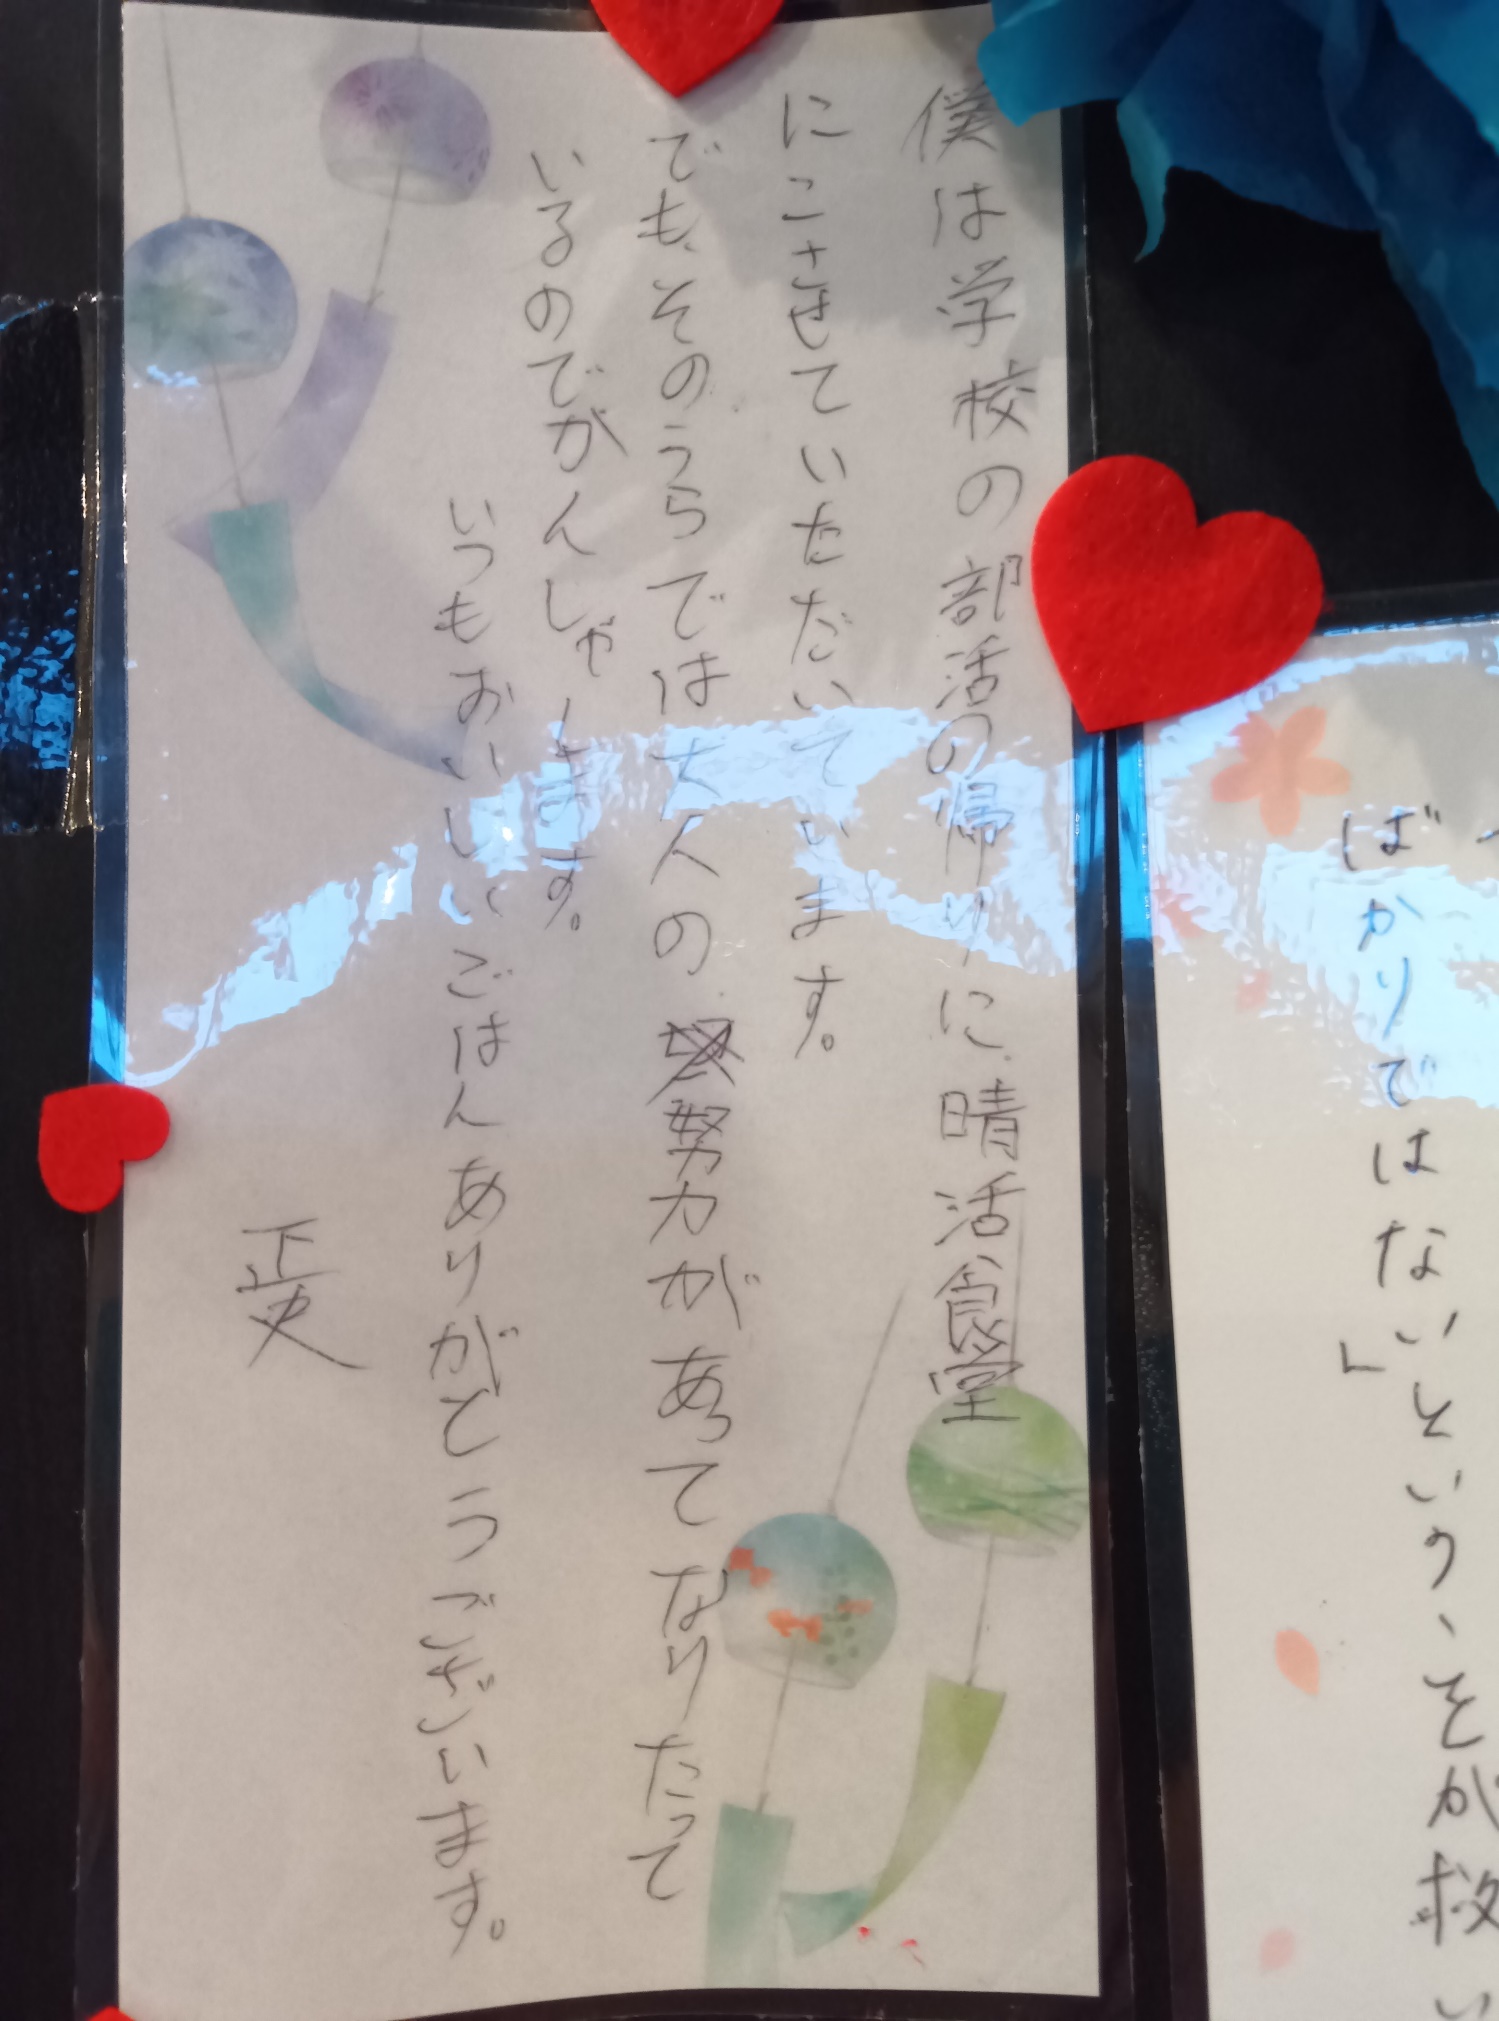 ばかりではないという、そ
」
僕は学校の部活の帰りに晴活食堂
にこさせていただいています。
でも、そのうらでは大人の努力があってなりたって
いるのでかんしゃします。
いつもおいしいごはんありがとうございます。
正史